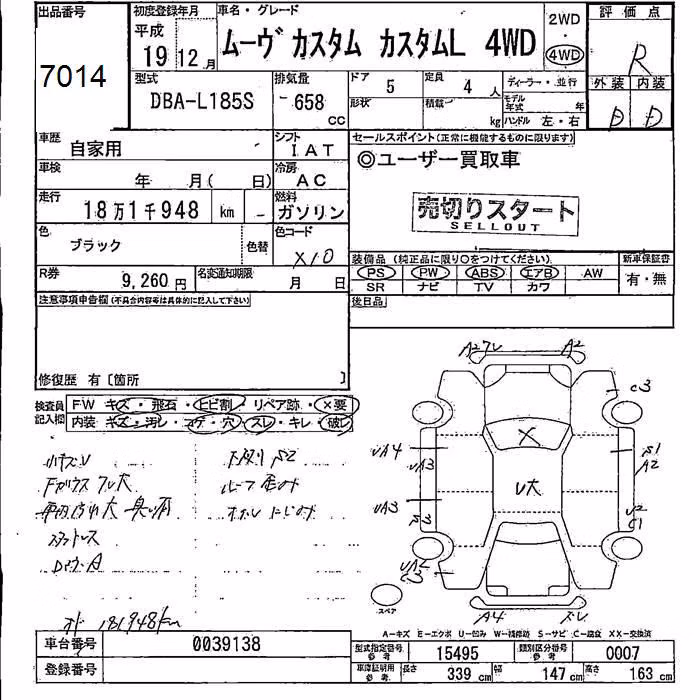 出品番号
7014
初度登録年月
平成
19 12 月
車名・グレード
ムーヴ カスタム カスタムL 4WD
2WD
・
4WD
評価点
R
外装 内装
D D
型式
DBA-L185S
排気量
658
CC
ドア 5
定員 4 人
形状
積載
kg
ディーラー・並行
モデル年式 年
ハンドル 左・右
車歴 自家用
シフト IAT
車検 年 月( 日)
冷房 AC
走行 18万1千948 km
燃料 ガソリン
色 ブラック
色替
色コード X10
R券 9,260 円
名変通知期限 月 日
セールスポイント(正常に機能するものに限ります)
◎ユーザー買取車
売切りスタート
SELLOUT
装備品 (純正品に限り○をつけてください)
PS PW ABS エアB AW
SR ナビ TV カワ
新車保証書
有・無
後日品
注意事項申告欄(不具合内容等は具体的に記入して下さい)
修復歴 有〔箇所 〕
検査員記入欄
FW キズ・飛石・ヒビ割・リペア跡・×要
内装 キズ・汚レ・コゲ・穴・スレ・キレ・破レ
小キズU
下廻り S2
ルーフ
オド 181948km
A2 フレ A2
C3
UA4
UA3
UA3
S1
A2
U2
C1
X
U大
UA2
C3
A4 ズレ
スペア
A−キズ E−エクボ U−凹み W−補修跡 S−サビ C−腐食 XX−交換済
車台番号 0039138
登録番号
型式指定番号 参考 15495
類別区分番号 参考 0007
車庫証明用 参考 長さ 339 cm 幅 147 cm 高さ 163 cm